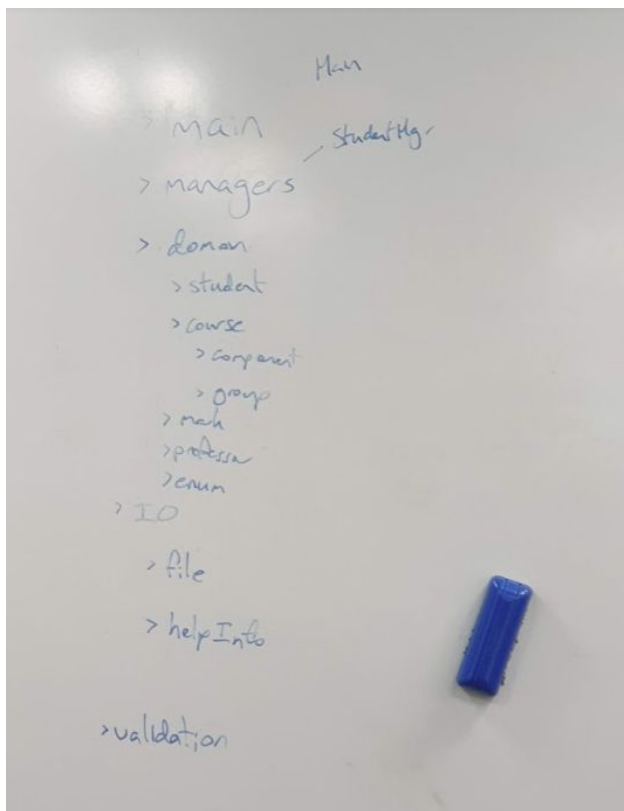 Man
> main
StudentMgr
> managers
> domain
> student
> course
> component
> group
> mark
> professor
> enum
> IO
> file
> helpInfo
> validation